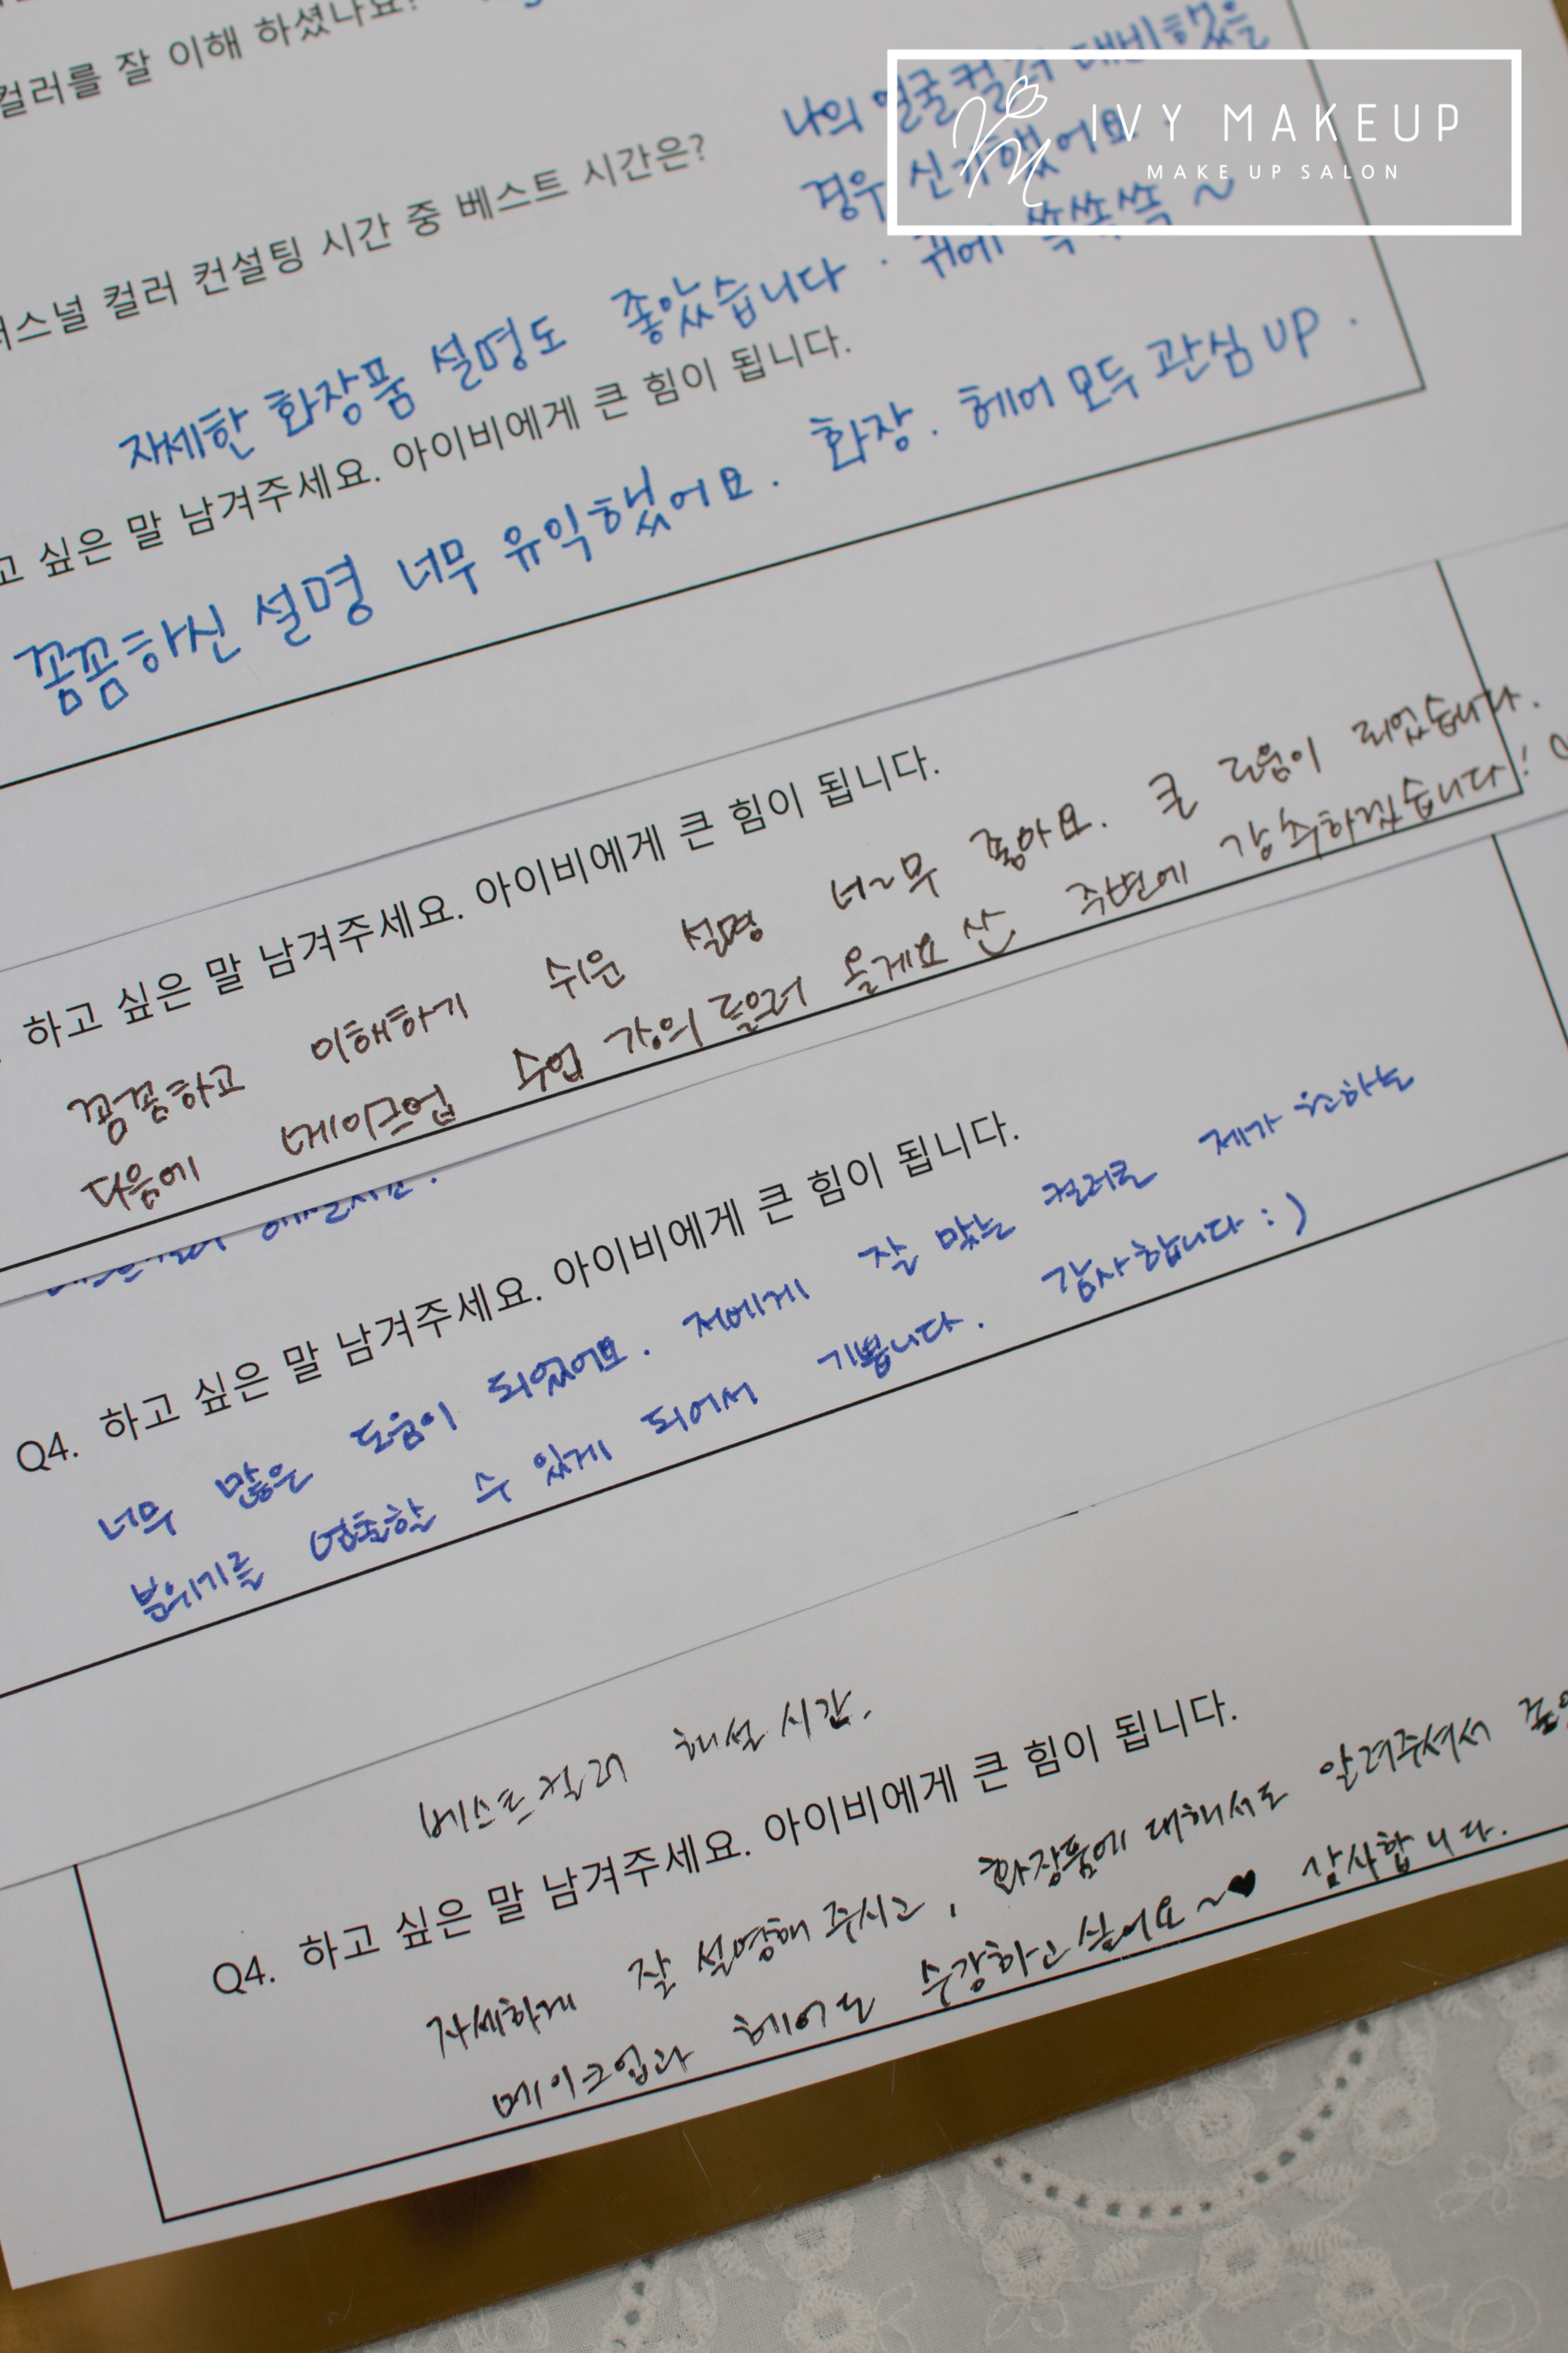 컬러를 잘 이해 하셨나요?
나의 얼굴컬러 대비했을
IVY MAKEUP
MAKE UP SALON
경우 신기했어요.
퍼스널 컬러 컨설팅 시간 중 베스트 시간은?
자세한 화장품 설명도 좋았습니다. 귀에 쏙쏙쏙 ~
고 싶은 말 남겨주세요. 아이비에게 큰 힘이 됩니다.
꼼꼼하신 설명 너무 유익했어요. 화장. 헤어 모두 관심 UP.
하고 싶은 말 남겨주세요. 아이비에게 큰 힘이 됩니다.
꼼꼼하고 이해하기 쉬운 설명 너~무 좋아요. 큰 도움이 되었습니다.
다음에 메이크업 수업 강의 들으러 올게요 ^^ 주변에 강추하겠습니다!
Q4. 하고 싶은 말 남겨주세요. 아이비에게 큰 힘이 됩니다.
너무 많은 도움이 되었어요. 저에게 잘 맞는 컬러로 제가 원하는
분위기를 연출할 수 있게 되어서 기쁩니다. 감사합니다 :)
베스트컬러 해설 시간.
Q4. 하고 싶은 말 남겨주세요. 아이비에게 큰 힘이 됩니다.
자세하게 잘 설명해 주시고, 화장품에 대해서도 알려주셔서
메이크업과 헤어도 수강하고 싶어요~♥ 감사합니다.